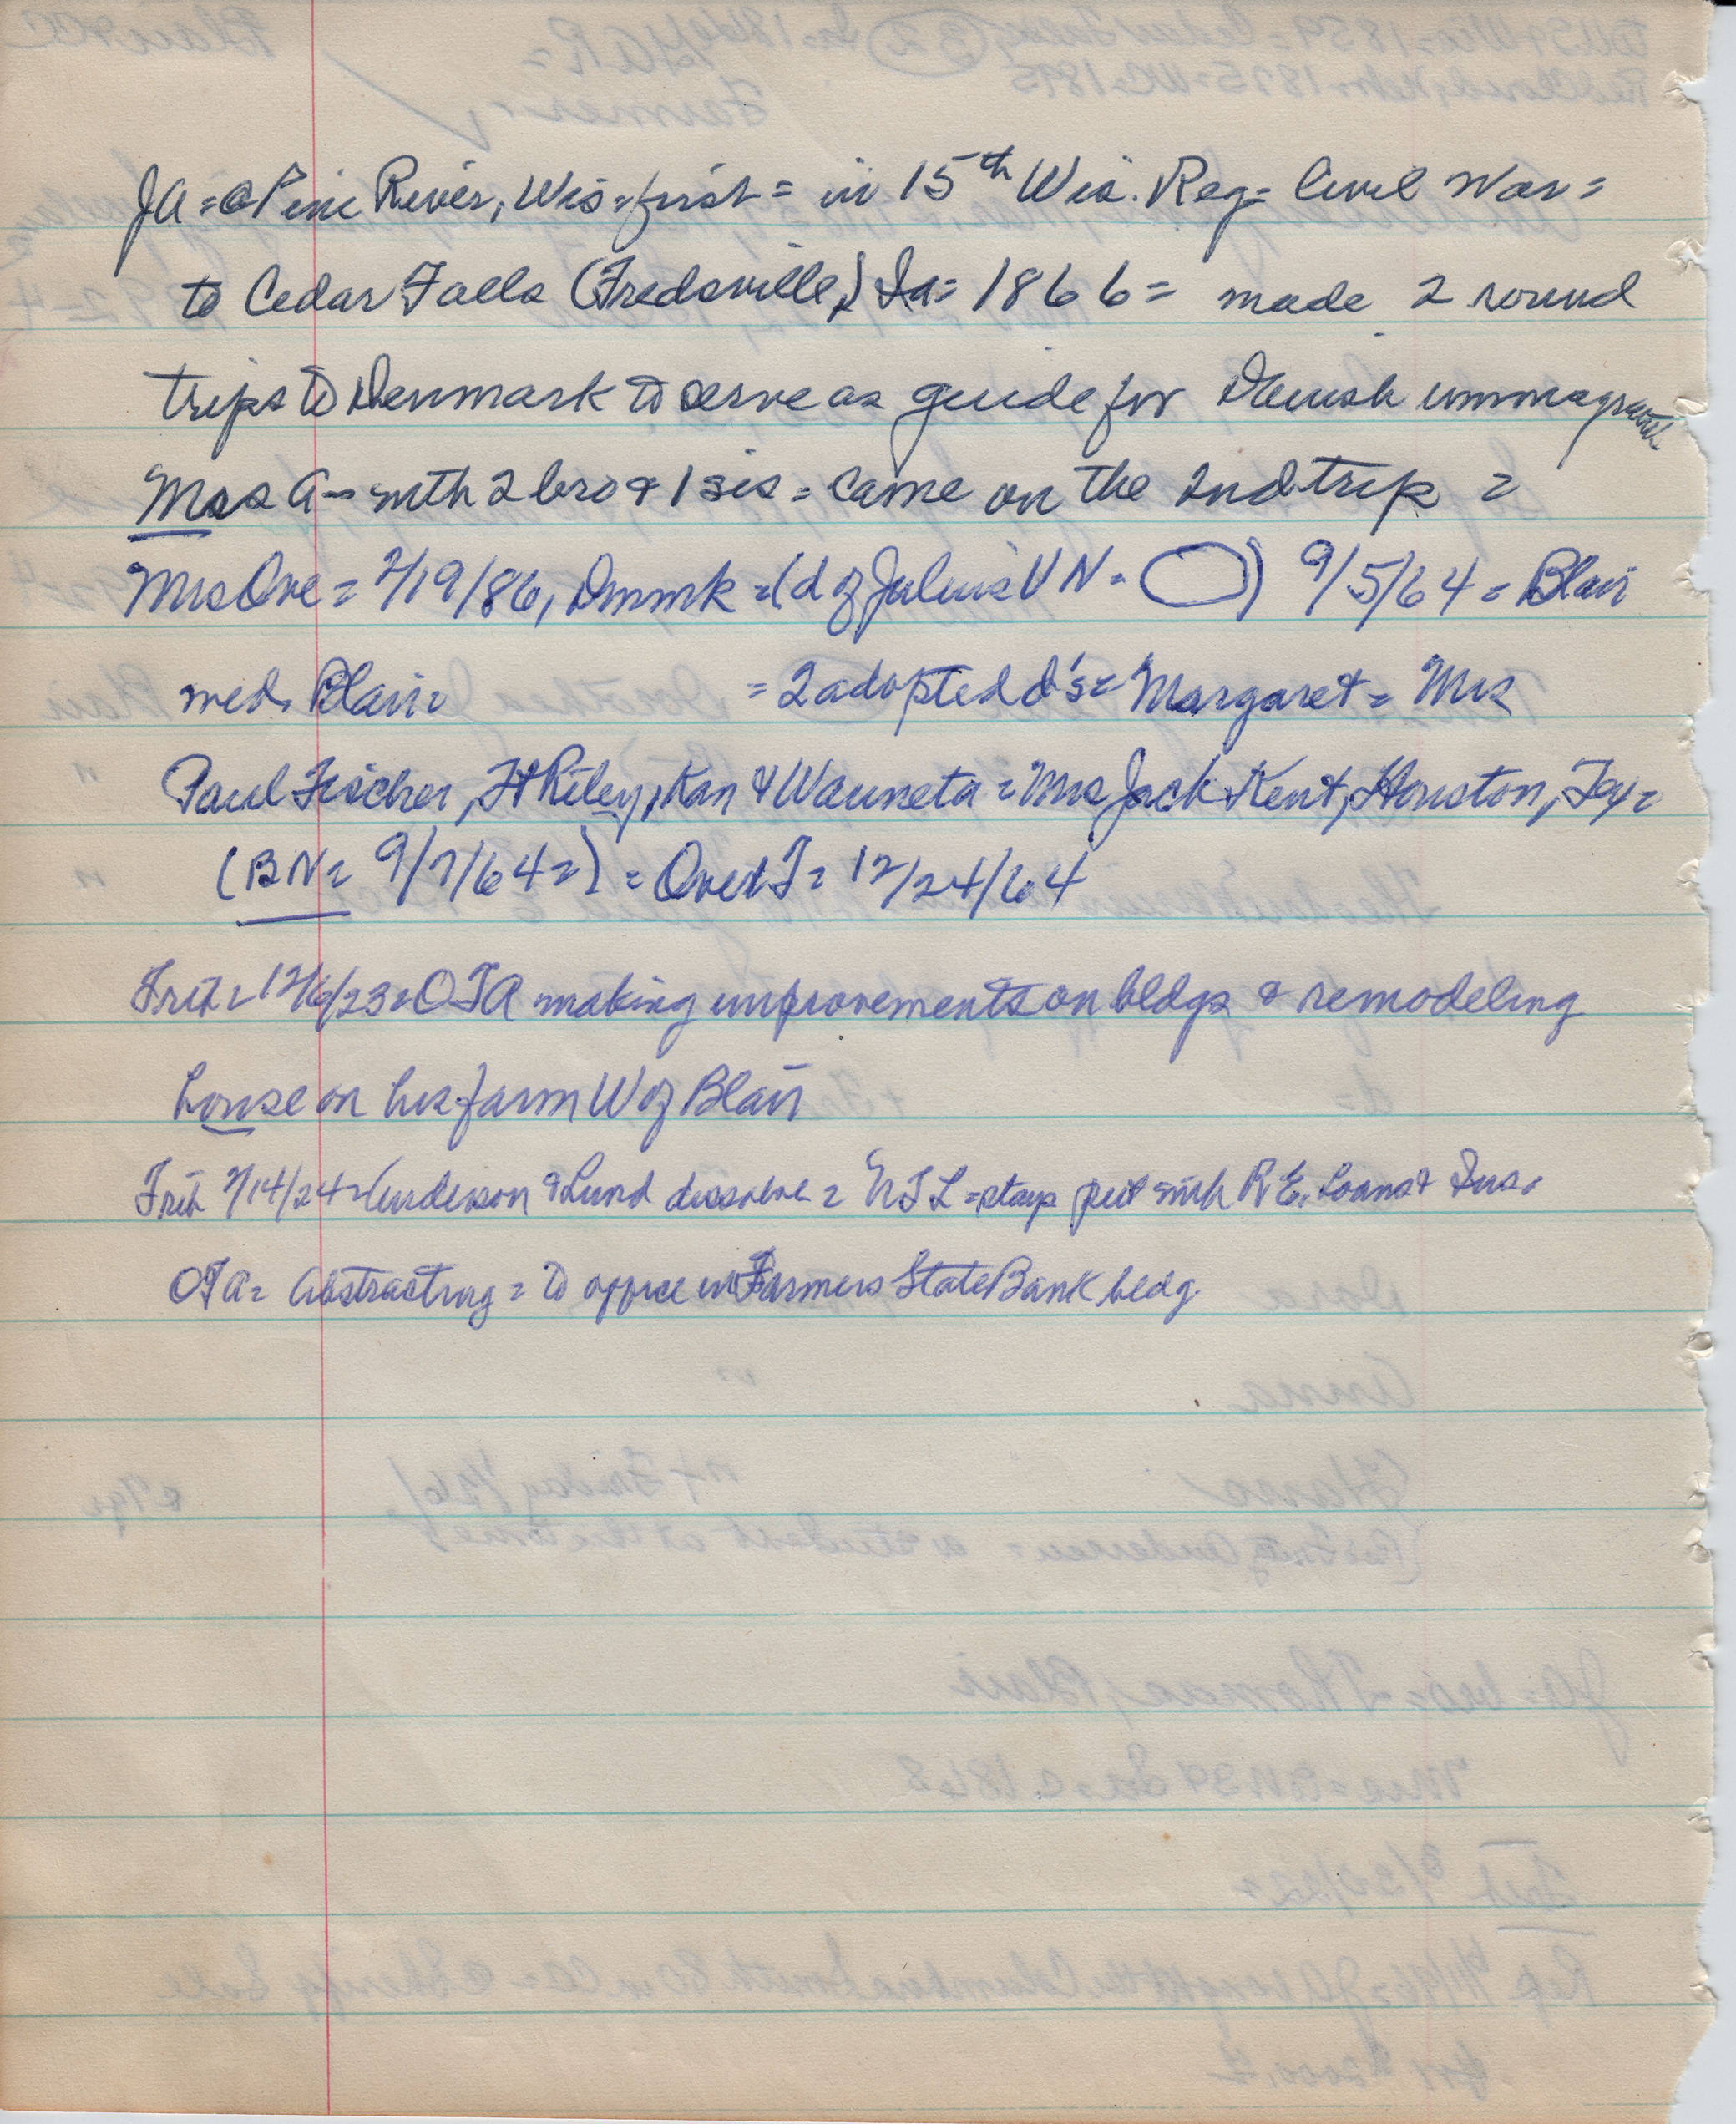 JA = @ Pine River, Wis = first = in 15th Wis. Reg = Civil War =
to Cedar Falls (Fredsville,) Ia = 1866 = made 2 round
trips to Denmark to serve as guide for Danish
Mrs A - with 2 bro & 1 sis = came on the 2nd trip =
Mrs Ove = 2/19/86, Dnmrk = (d of Julius V N = ) 9/5/64 = Blair
wed. Blair = = 2 adopted d's = Margaret = Mrs
Paul Fischer, Ft Riley, Kan & Wauneta = Mrs Jack Kent, Houston, Tex =
(BN = 9/7/64 =) = Ove d T = 12/24/64
Trib = 12/6/23 = OTA making improvements on bldgs & remodeling
house on his farm W of Blair
Trib 2/14/24 = Anderson & Lund dissolve = = stays put with R E. Loans & Ins.
OTA = Abstracting = to office in Farmers State Bank bldg.